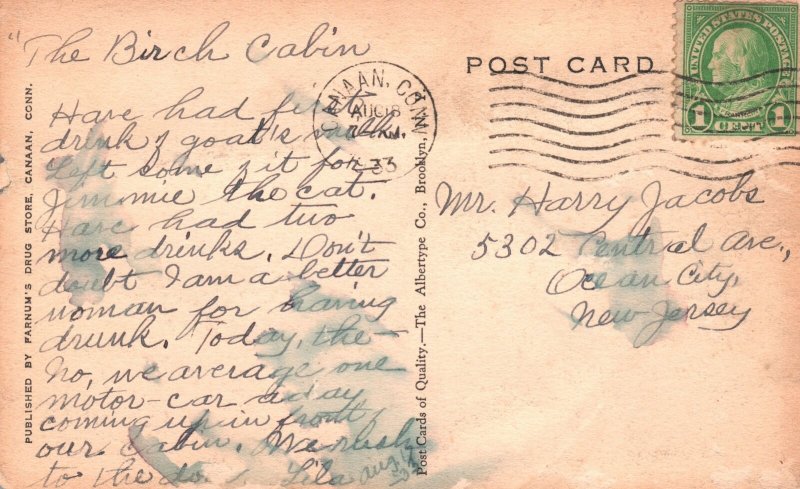 "The Birch Cabin
Have had first
drink of goat's milk.
Left some of it for
Jimmie the cat.
Have had two
more drinks. Don't
doubt I am a better
woman for having
drunk. Today, the—
No, we average one
motor-car a day
coming up in front of
our cabin. We rush
to the do
Lila
Aug 17
33
PUBLISHED BY FARNUM'S DRUG STORE, CANAAN, CONN.
Post Cards of Quality.—The Albertype Co., Brooklyn,
CANAAN, CONN.
AUG 18
33
POST CARD
UNITED STATES POSTAGE
FRANKLIN
1 CENT 1
Mr. Harry Jacobs
5302 Central Ave.,
Ocean City,
New Jersey